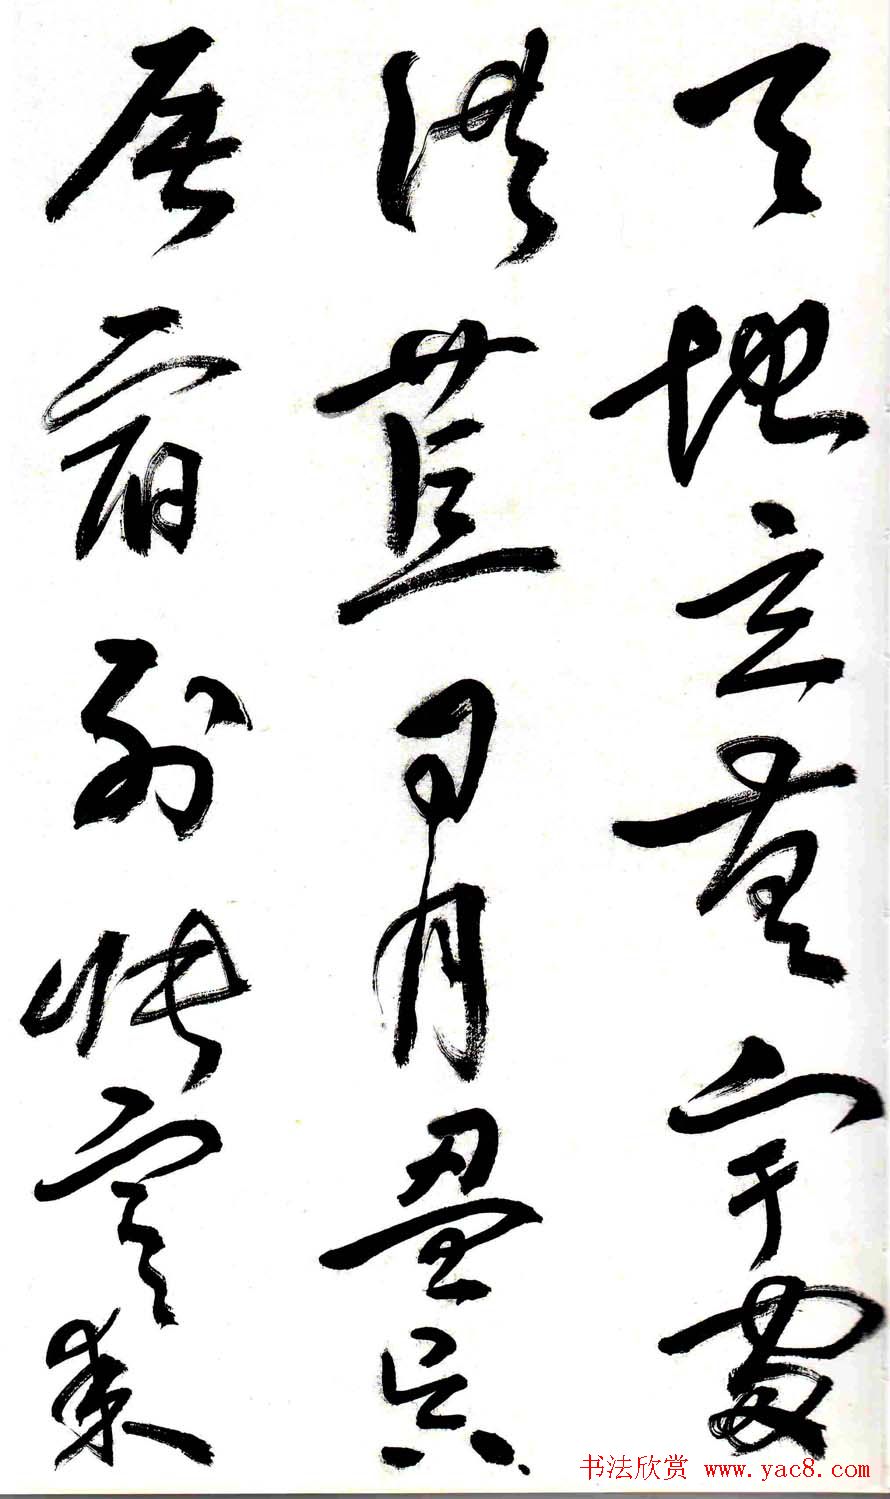 天地玄黄宇宙
洪荒日月盈昃
辰宿列张寒来
书法欣赏 www.yac8.com